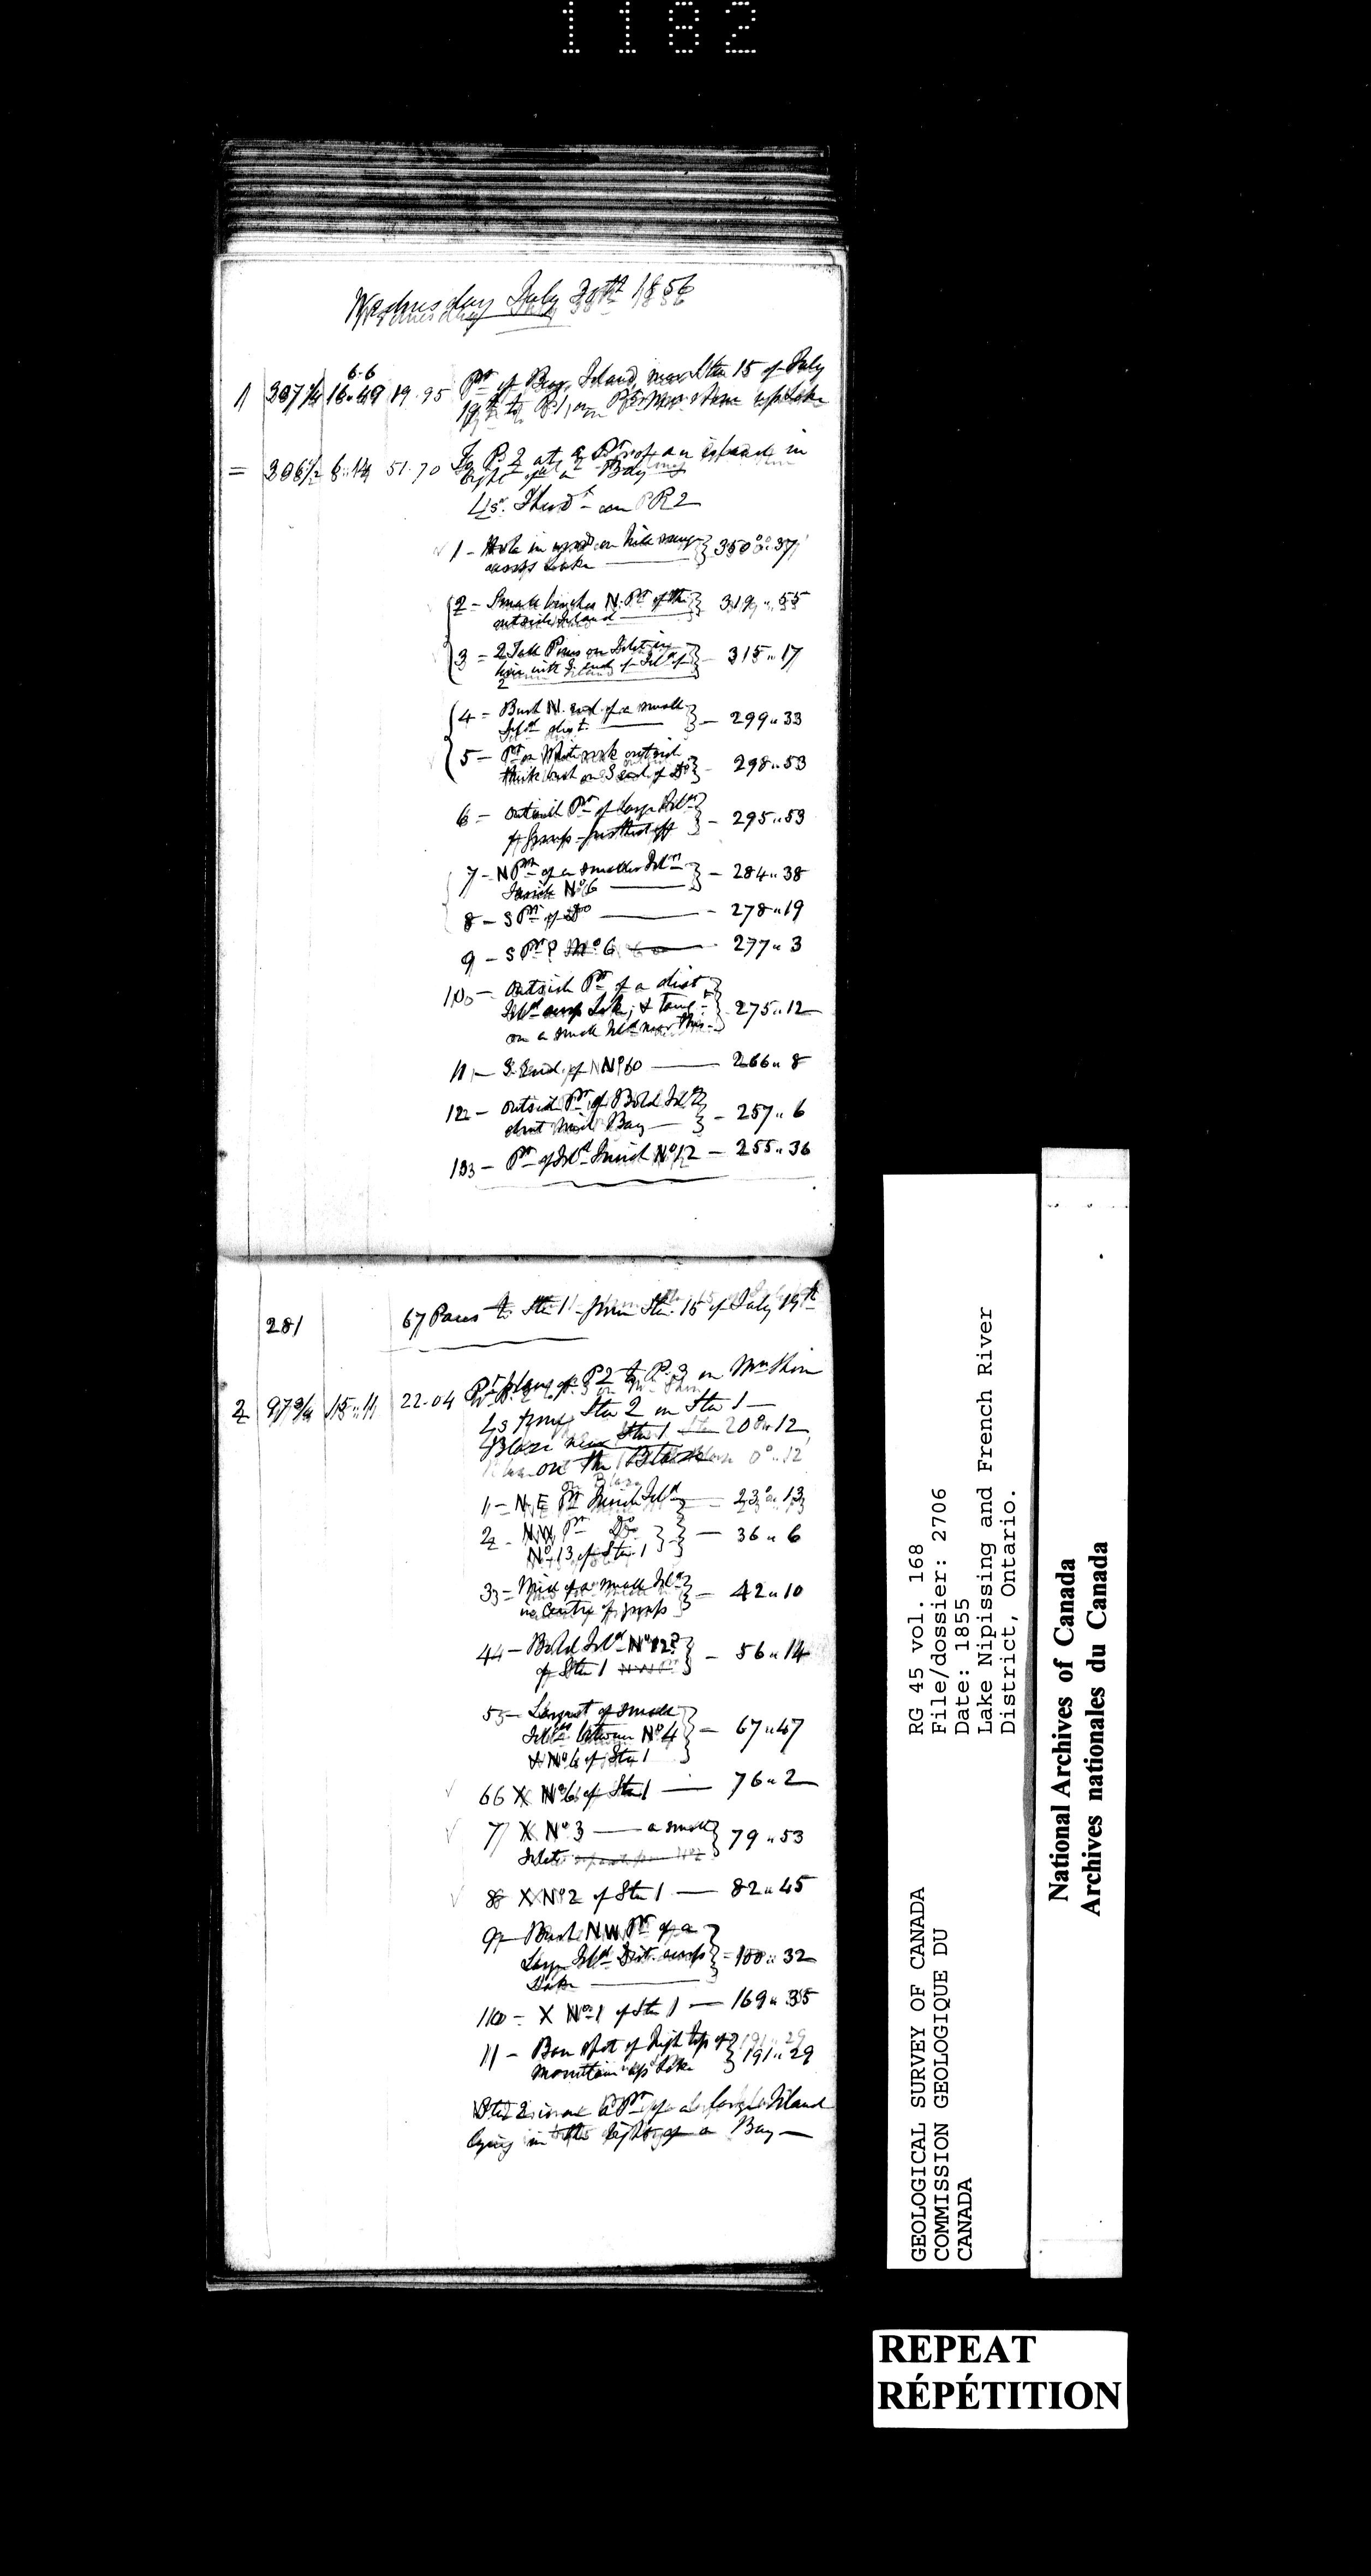 1182
Wednesday July 30th 1856
6.6
1 307 1/4 16.49 19.95 Pt of Bay, Island, near Stn 15 of July
19th to P.1, on
= 306 1/2 51.70 To P.2 at a Pt of an island in
bight of a Bay
Ls. Theodt on P R2
1 - Hole in on hill range } 350°..37'
across Lake
2 - Small birches N. Pt of the } 319..55
outside Island
3 - 2 Tall Pines on Islet in } - 315..17
line with S. end of Isld of
2
4 - Bush N. end of a small } - 299..33
Isld dist.
5 - Pt on White rock outside
thick bush on S end of Do } - 298..53
6 - outside Pt of large Isld } - 295..53
of Group - furthest off
7 - N Pt of a smaller Isld } - 284..38
Inside No 6
8 - S Pt of Do - 278..19
9 - S Pt ? No 6 - 277..3
10 - outside Pt of a dist
Isld across Lake, & Tangt } 275..12
on a small Isld near this
11 - S. End of No 10 - 266..8
12 - outside Pt of Bold Isld } - 257..6
dist mid Bay
13 - Pt of Isld Inside No 12 - 255..36
281 67 Paces to Stn 1 from Stn 15 of July 19th
2 97 3/4 15..11 22.04 P2 to P.3 on Mn Shore
Ls from Stn 2 on Stn 1
Blaze near Stn 1 208..12
on the Blaze 0°..12'
1 - N.E Pt Inside Isld - 23°..13
2 - NW Pt Do } - 36..6
No 13 of Stn 1
3 - Mid of a small Isld } - 42..10
in Centre of group
4 - Bold Isld No 12? } - 56..14
of Stn 1 N W Pt
5 - Largest of small
Islds between No 4 } - 67..47
& No 6 of Stn 1
6 X No 6 of Stn 1 - 76..2
7 X No 3 - a small } 79..53
Islet separate from No 2
8 X No 2 of Stn 1 - 82..45
9 - Bush NW Pt of a
Large Isld Dist. across } - 100..32
Lake
10 - X No 1 of Stn 1 - 169..35
11 - Bare spot of high top of } 191..29
Mountain up Lake
Stn 2 is on a Pt of a large Island
lying in the bight of a Bay
GEOLOGICAL SURVEY OF CANADA
COMMISSION GEOLOGIQUE DU
CANADA
RG 45 vol. 168
File/dossier: 2706
Date: 1855
Lake Nipissing and French River
District, Ontario.
National Archives of Canada
Archives nationales du Canada
REPEAT
RÉPÉTITION